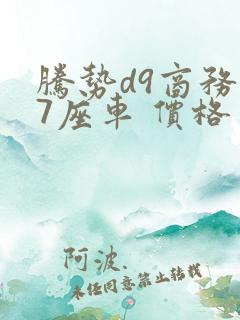 騰勢d9商務
7座車 價格
阿波.
未經同意禁止轉載